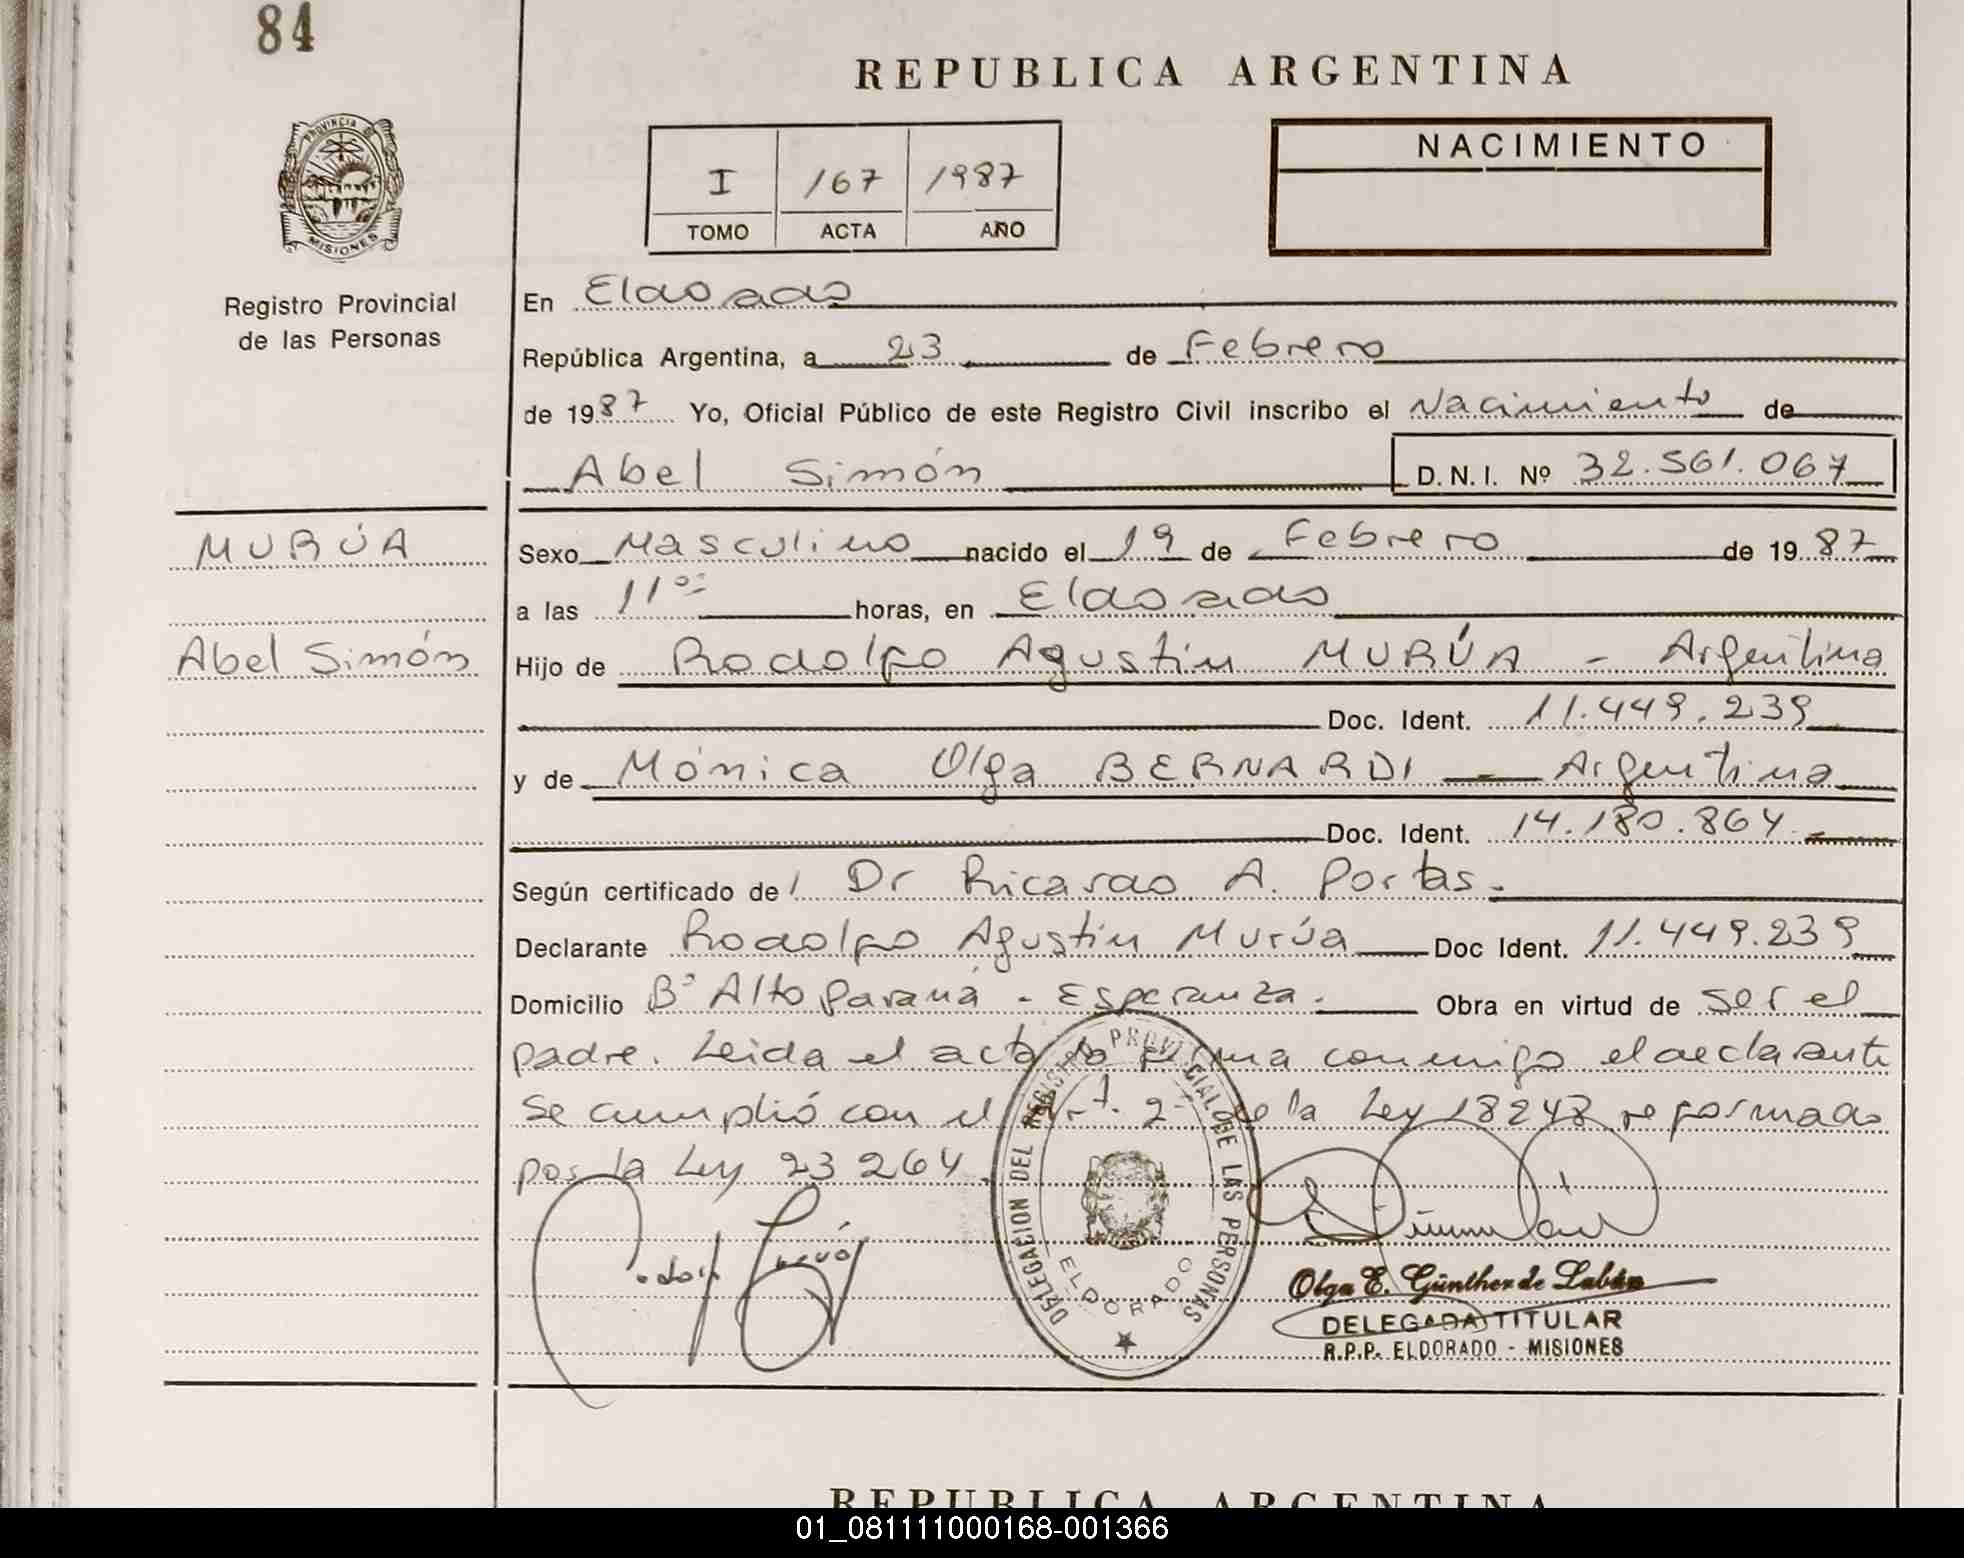 84
REPUBLICA ARGENTINA
PROVINCIA DE
MISIONES
NACIMIENTO
I 167 1987
TOMO ACTA AÑO
Registro Provincial
de las Personas
En Eldorado
República Argentina, a 23 de Febrero
de 1987 Yo, Oficial Público de este Registro Civil inscribo el Nacimiento de
Abel Simón D.N.I. Nº 32.561.067
MURÚA
Sexo Masculino nacido el 19 de Febrero de 1987
a las 11 00 horas, en Eldorado
Abel Simón
Hijo de Rodolfo Agustin MURÚA - Argentina
Doc. Ident. 11.449.239
y de Mónica Olga BERNARDI - Argentina
Doc. Ident. 14.180.864
Según certificado de Dr Ricardo A. Portas.
Declarante Rodolfo Agustin Murúa Doc Ident. 11.449.239
Domicilio Bº Alto Paraná - Esperanza. Obra en virtud de ser el
padre. Leida el acta la firma conmigo el declarante
Se cumplió con el Art. 2º de la Ley 18248 reformado
por la Ley 23264.
DELEGACION DEL REGISTRO PROVINCIAL DE LAS PERSONAS
ELDORADO
Olga E. Günther de Labán
DELEGADA TITULAR
R.P.P. ELDORADO - MISIONES
REPUBLICA ARGENTINA
01_081111000168-001366